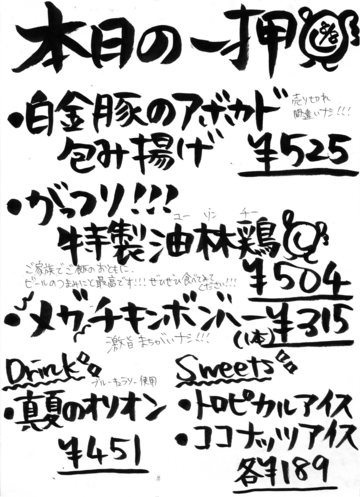 本日の一押
・白金豚のアボカド
包み揚げ
売り切れ
間違いナシ!!!
¥525
・がっつり!!!
ユーリンチー
特製油林鶏
ご家族でご飯のおともに、
ビールのつまみにと最高です!!!ぜひぜひ食べてみて
ください!!!
¥504
・メガチキンボンバー
(1本)¥315
激旨まちがいナシ!!
Drink
ブルーキュラソー使用
・真夏のオリオン
¥451
Sweets
・トロピカルアイス
・ココナッツアイス
各¥189